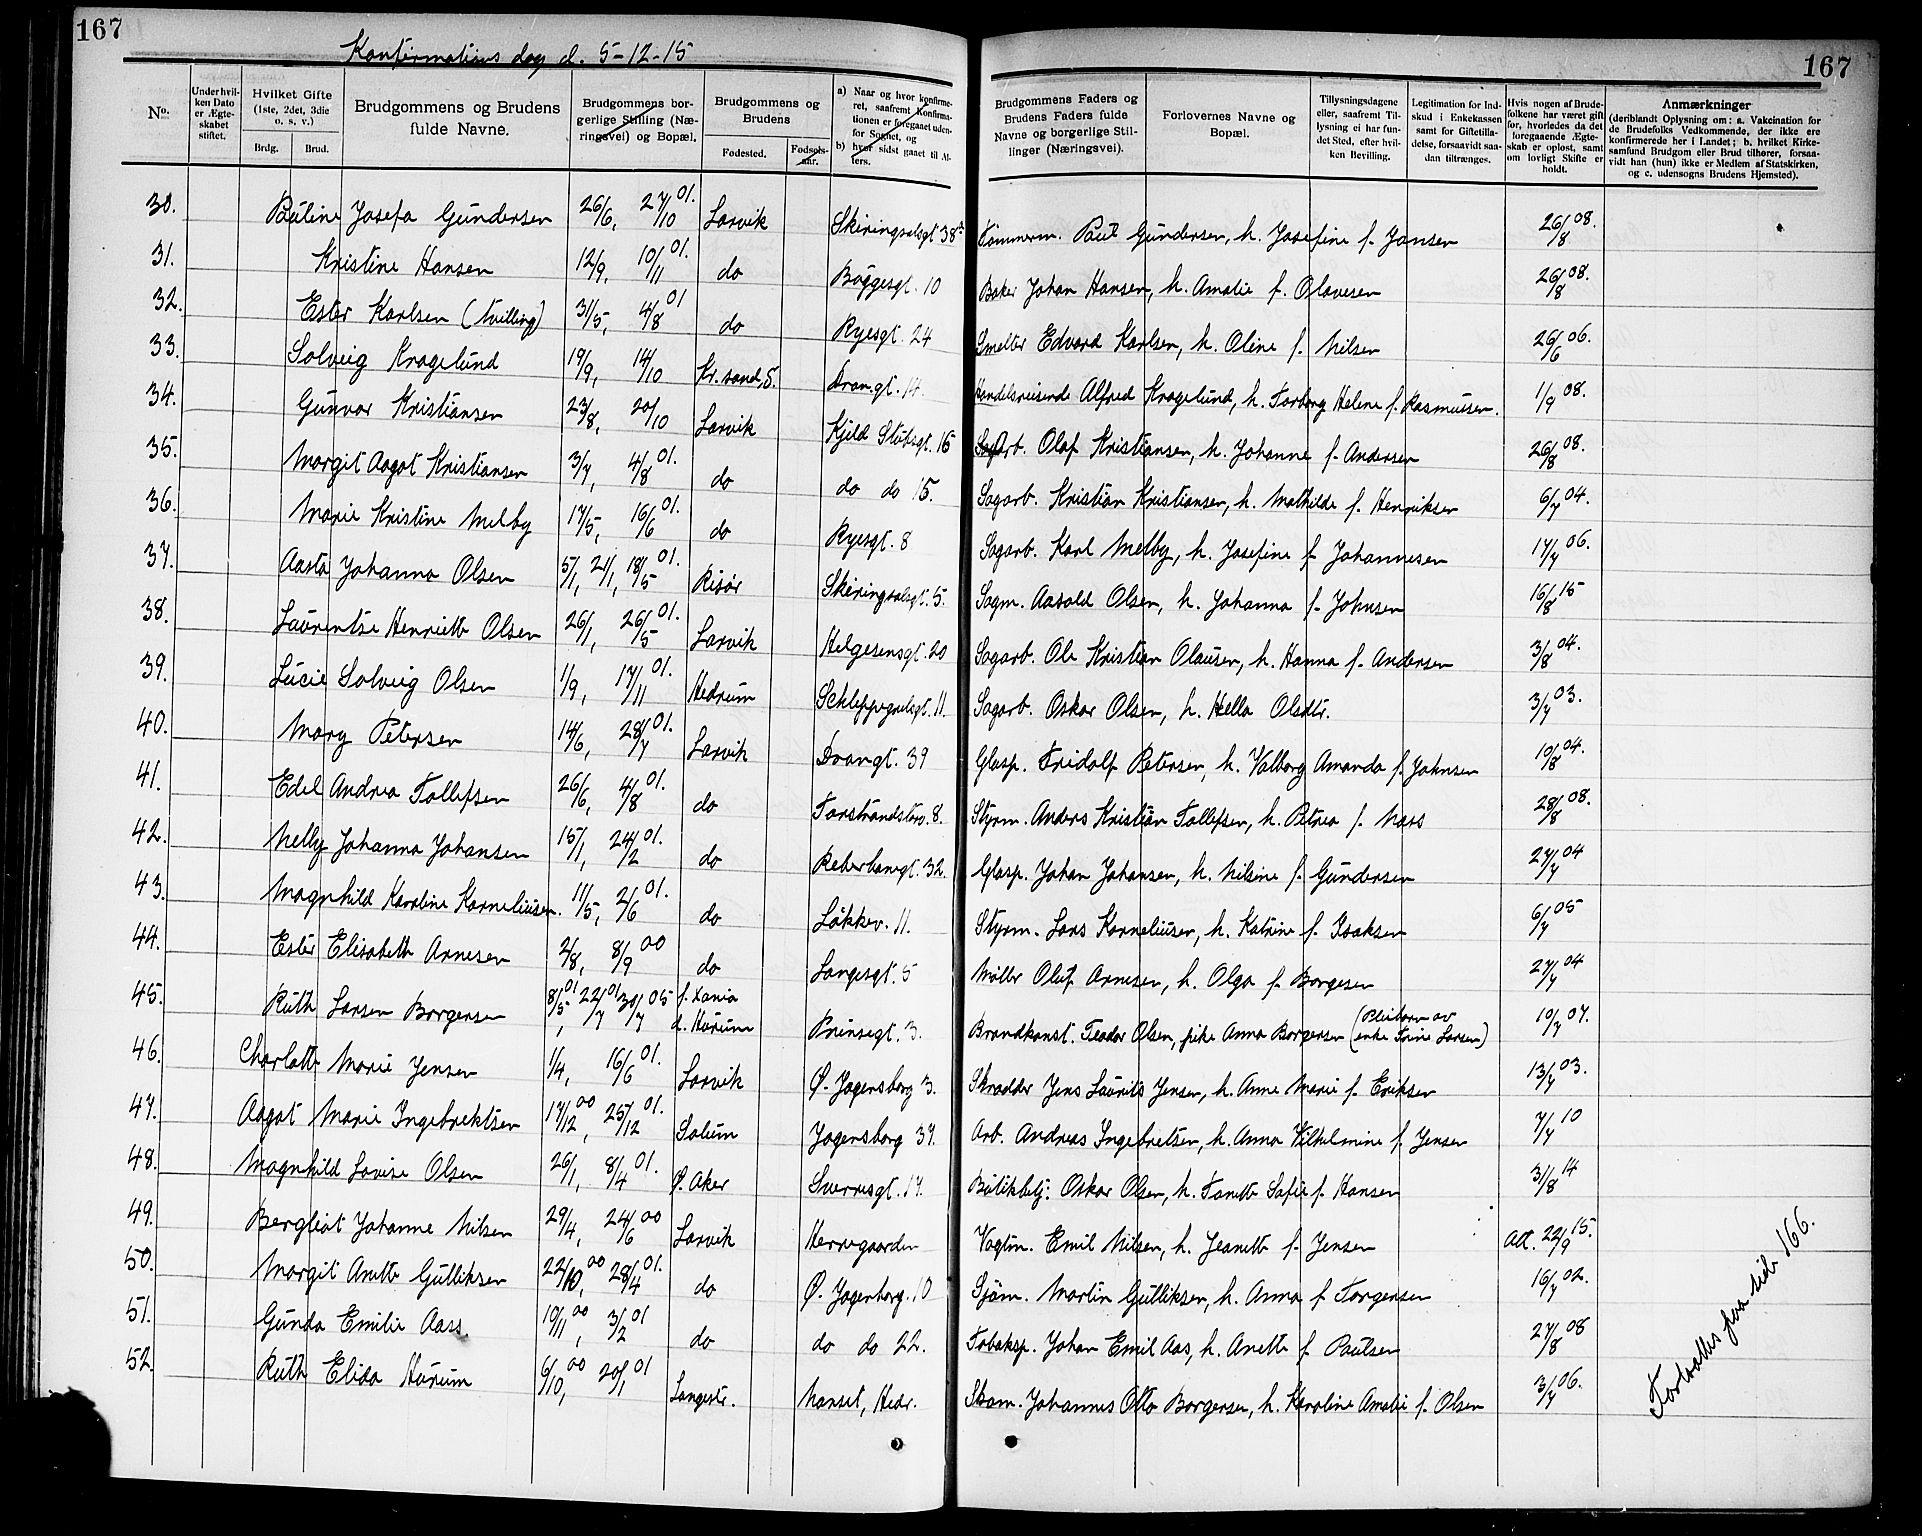 167
167
Konfirmations dag d. 5-12-15
No.
Under hvilken Dato er Ægteskabet stiftet.
Hvilket Gifte (1ste, 2det, 3die o. s. v.)
Brdg. Brud.
Brudgommens og Brudens fulde Navne.
Brudgommens borgerlige Stilling (Næringsvei) og Bopæl.
Brudgommens og Brudens
Fødested. Fødselsaar.
a) Naar og hvor konfirmeret, saafremt Konfirmationen er foregaaet udenfor Sognet, og
b) hvor sidst gaaet til Alters.
Brudgommens Faders og Brudens Faders fulde Navne og borgerlige Stillinger (Næringsvei).
Forlovernes Navne og Bopæl.
Tillysningsdagene eller, saafremt Tillysning ei har fundet Sted, efter hvilken Bevilling.
Legitimation for Indskud i Enkekassen samt for Giftetilladelse, forsaavidt saadan tiltrænges.
Hvis nogen af Brudefolkene har været gift før, hvorledes da det foregaaende Ægteskab er opløst, samt om lovligt Skifte er holdt.
Anmærkninger
(deriblandt Oplysning om: a. Vakcination for de Brudefolks Vedkommende, der ikke ere konfirmerede her i Landet; b. hvilket Kirkesamfund Brudgom eller Brud tilhører, forsaavidt han (hun) ikke er Medlem af Statskirken, og c. udensogns Brudens Hjemsted).
30. Pauline Josefa Gundersen 26/6, 27/10 01. Larvik Skiringsalsgt 38 Tømmerm. Paul Gundersen, h. Josefine f. Jansen 26/8 08.
31. Kristine Hansen 12/9, 10/11 01. do Buggesgt. 10 Baker Johan Hansen, h. Amalie f. Olavesen 26/8 08.
32. Ester Karlsen (tvilling) 31/5, 4/8 01 do Ryesgt. 24 Smelter Edvard Karlsen, h. Oline f. Nilsen 26/6 06.
33. Solveig Kragelund 19/9, 14/10 Kr.sand, S. Dron.gt. 14. Handelsreisende Alfred Kragelund, h. Torborg Helene f. Rasmussen. 1/9 08.
34. Gunvor Kristiansen 23/8, 20/10 Larvik Kjeld Stubsgt. 15 Sagarb. Olaf Kristiansen, h. Johanne f. Andersen 26/8 08.
35. Margit Aagot Kristiansen 3/7, 4/8 01. do do do 15. Sagarb. Kristian Kristiansen, h. Mathilde f. Henriksen 6/7 04.
36. Marie Kristine Melby 17/5, 16/6 01. do Ryesgt. 8 Sagarb. Karl Melby, h. Josefine f. Johannesen 17/7 06.
37. Aasta Johanna Olsen 5/1, 21/1, 18/5 01. Risør Skiringsalsgt. 5. Sagm. Aasold Olsen, h. Johanna f. Johnsen 16/8 15
38. Laurentse Henriette Olsen 26/1, 26/5 01. Larvik Helgesensgt. 20 Sagarb. Ole Kristian Olausen, h. Hanna f. Andersen 3/8 04.
39. Lucie Solveig Olsen 1/9, 17/11 01. Hedrum Schleppegrelsgt. 11. Sagarb. Oskar Olsen, h. Hella Olsdtr. 3/7 03.
40. Mary Petersen 14/6, 28/7 01. Larvik Drongt. 39 Glasp. Fridolf Petersen, h. Valborg Amanda f. Johnsen 10/8 04.
41. Edel Andrea Tollefsen 26/6, 4/8 01. do Torstrandsterv. 8. Styrm. Anders Kristian Tollefsen, h. Petrea f. Maas 28/8 08.
42. Nelly Johanna Johansen 15/1, 24/2 01. do Reberbanegt. 32. Glasp. Johan Johansen, h. Nilsine f. Gundersen 27/7 04
43. Magnhild Karoline Korneliussen. 11/5, 2/6 01. do Løkkev. 11. Styrm. Lars Korneliusen, h. Katrine f. Isaksen 6/7 05
44. Ester Elisabeth Arnesen 2/8, 8/9 00 do Langesgt. 5 Møller Oluf Arnesen, h. Olga f. Borgesen 27/7 04
45. Ruth Larsen Borgersen 8/5 01, 22/7 01 30/7 05 f. Xania d. Hurum Prinsegt. 3. Brandkonst. Teodor Olsen, pike Anna Borgersen (Pleibarn av enke Trine Larsen) 10/7 07.
46. Charlotte Marie Jensen 1/4, 16/6 01. Larvik Ø. Jagersborg 3. Skrædder Jens Laurits Jensen, h. Anne Marie f. Eriksen 13/7 03.
47. Aagot Marie Ingebrektsen 17/12 00, 25/12 01. Solum Jagersborg 37. Arb. Andreas Ingebretsen, h. Anna Vilhelmine f. Jensen 7/7 10
48. Magnhild Lovise Olsen 26/1, 8/4 01. Ø. Aker Sverresgt. 17. Butikbetj. Oskar Olsen, h. Tanette Sofie f. Hansen 31/8 14
49. Bergliot Johanne Nilsen 29/4, 24/6 00 Larvik Herregaarden Vagtm. Emil Nilsen, h. Jeanette f. Jensen Att. 22/9 15.
50. Margit Anette Gulliksen 22/10 00, 28/4 01. do Ø. Jagerborg. 10 Sjøm. Martin Gulliksen, h. Anna f. Torgersen 16/7 02.
51. Gunda Emilie Aass 10/11 00, 3/2 01 do do do 22. Tobaksp. Johan Emil Aas, h. Anette f. Paulsen 27/8 08
52. Ruth Elida Hurum 6/10, 00 20/1 01 Langestr. Nanset, Hedr. Skom. Johannes Otto Borgersen, h. Karoline Amalie f. Olsen 3/7 06.
Fortsættes paa side 166.